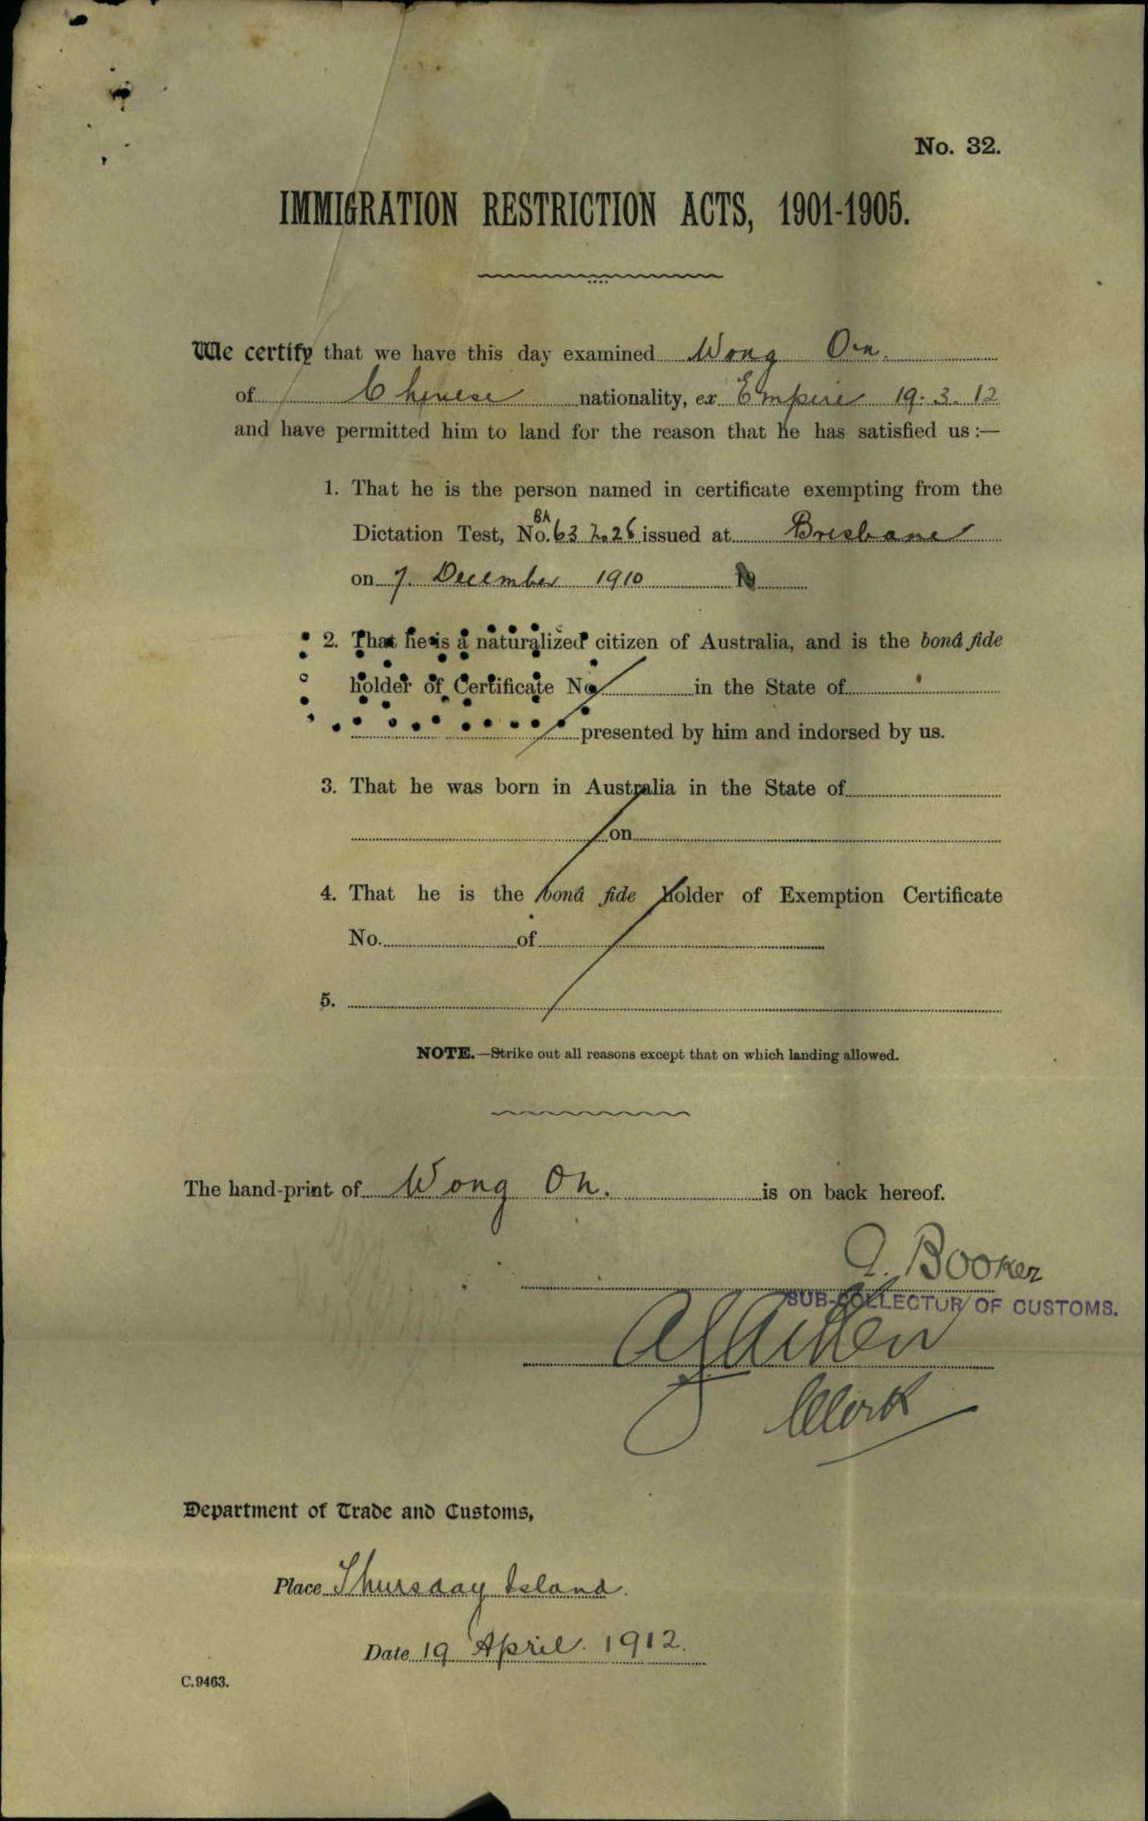 No. 32.
IMMIGRATION RESTRICTION ACTS, 1901-1905.
We certify that we have this day examined Wong On.
of Chinese nationality, ex Empire 19. 3. 12
and have permitted him to land for the reason that he has satisfied us :—
1. That he is the person named in certificate exempting from the
BA
Dictation Test, No. 63 issued at Brisbane
on 7. December 1910
2. That he is a naturalized citizen of Australia, and is the bonâ fide
holder of Certificate No. in the State of
presented by him and indorsed by us.
3. That he was born in Australia in the State of
on
4. That he is the bonâ fide holder of Exemption Certificate
No. of
5.
NOTE.—Strike out all reasons except that on which landing allowed.
The hand-print of Wong On. is on back hereof.
Booker
SUB-COLLECTOR OF CUSTOMS.
Clerk
Department of Trade and Customs,
Place Thursday Island.
Date 19 April. 1912.
C.9463.